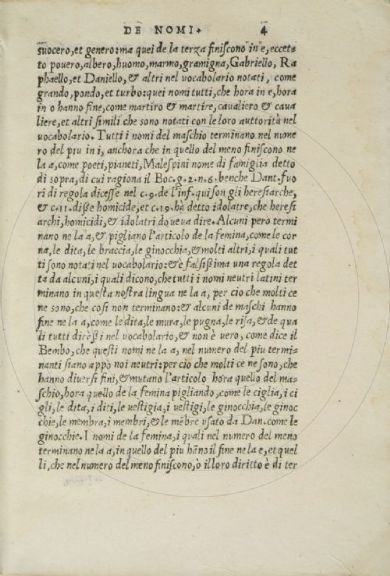 DE NOMI. 4
suocero, et genero: ma quei de la terza finiscono in e, eccet=
to pouero, albero, huomo, marmo, gramigna, Gabriello, Ra
phaello, et Daniello, & altri nel uocabolario notati, come
grando, pondo, et turbo: quei nomi tutti, che hora in e, hora
in o hanno fine, come martiro & martire, caualiero & caua
liere, et altri simili che sono notati con le loro auttorità nel
uocabolario. Tutti i nomi del maschio terminano nel nume
ro del piu in i, anchora che in quello del meno finiscono ne
la a, come poeti, pianeti, Malespini nome di famiglia detto
di sopra, di cui ragiona il Boc. g. 2. n. 6. benche Dant. fuo
ri di regola dicesse nel c. 9. de l'inf. qui son gli heresiarche,
& c. 11. disse homicide, et c. 19. hà detto idolatre, che heresi
archi, homicidi, & idolatri doueua dire. Alcuni pero termi
nano ne la a, & pigliano l'articolo de la femina, come le cor
na, le dita, le braccia, le ginocchia, & molti altri, i quali tut
ti sono notati nel uocabolario: & è falsissima una regola det
ta da alcuni, i quali dicono, che tutti i nomi neutri latini ter
minano in questa nostra lingua ne la a, per cio che molti ce
ne sono, che cosi non terminano: & alcuni de maschi hanno
fine ne la a, come le dita, le mura, le pugna, le risa, & de qua
di tutti dirassi nel uocabolario, & non è uero, come dice il
Bembo, che questi nomi ne la a, nel numero del piu termi=
nanti siano appò noi neutri: per cio che molti ce ne sono, che
hanno diuersi fini, & mutano l'articolo hora quello del ma=
schio, hora quello de la femina pigliando, come le ciglia, i ci
gli, le dita, i diti, le uestigia, i uestigi, le ginocchia, le ginoc
chie, le membra, i membri, & le mēbre usato da Dan. come le
ginocchie. I nomi de la femina, i quali nel numero del meno
terminano ne la a, in quello del piu hāno il fine ne la e, et quel
li, che nel numero del meno finiscono, ò il loro diritto è di ter